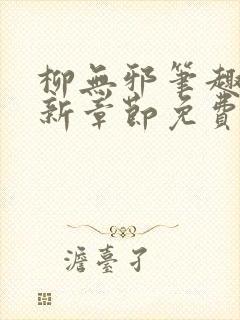 柳無邪筆趣
新章節免費
澹臺孑